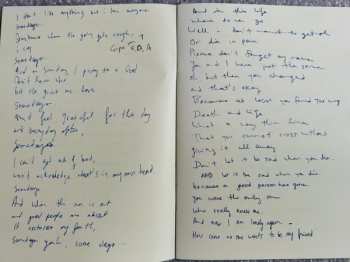 I don't like anything but I love anyone
Sundays
Sometimes when the going gets rough,
I say
Capo E D A
Sundays
And on Sunday I pray to a God
Don't know who
but he gives me love
Sundays
And feel grateful for this day
and everyday after
Sundays
I can't get out of bed,
won't acknowledge what's in my own head
Sundays
And when the sun is out
and good people are about
It restores my faith,
Sundays yeah, some days...
And in this life
where do we go
Well - don't want to get old
Or die in pain
Please don't forget my name
You and I have just the same
but then you changed
and that's okay
Because at least you found the way
Death and life
What a very thin line
That you cannot cross without
giving it all away
Don't let it be sad when you die
AND let it be sad when you die
because a good person has gone
you were the only one
Who really knows me
And now I am lonely again -
How come no one wants to be my friend